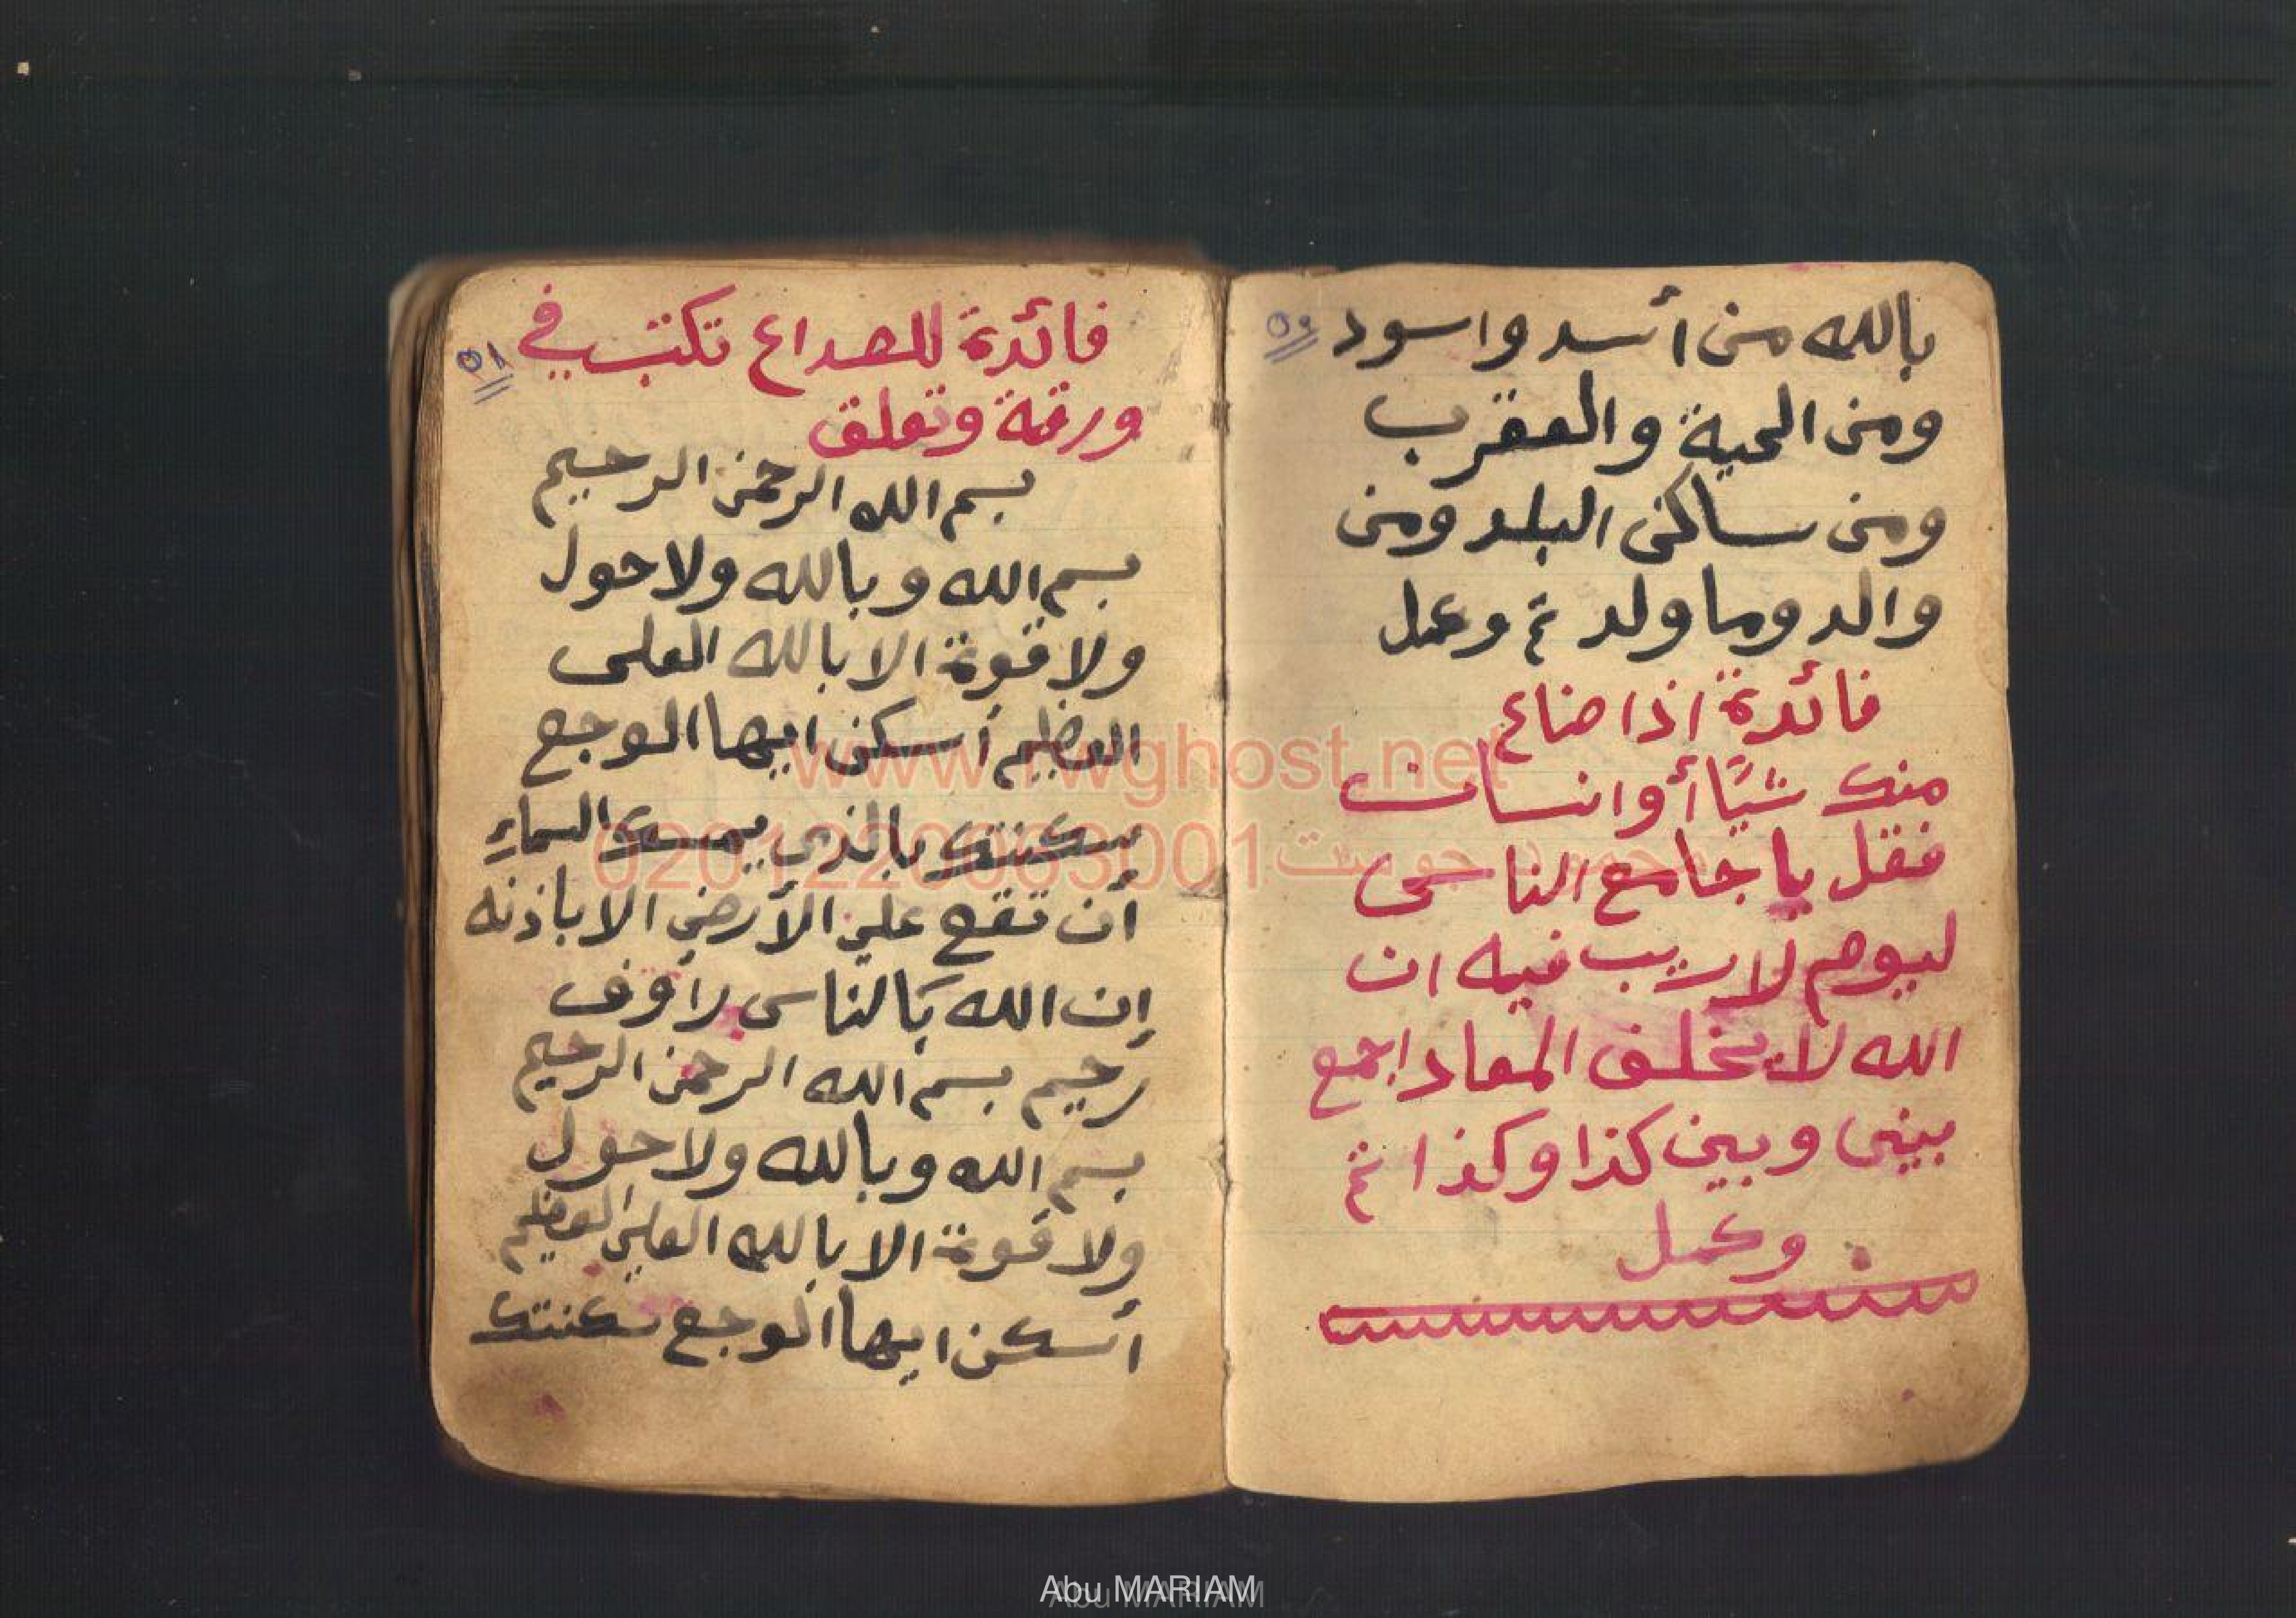 بالله من أسد واسود
٥٠
ومن الحية والعقرب
ومن ساكن البلد ومن
والد وما ولد تم وعمل
فائدة اذا ضاع
منك شيًا أو انسان
فقل يا جامع الناس
ليوم لا ريب فيه ان
الله لا يخلف المعاد اجمع
بينى وبين كذا وكذا تم
وكمل
فائدة للصداع تكتب في
٥١
ورقة وتعلق
بسم الله الرحمن الرحيم
بسم الله وبالله ولا حول
ولا قوة الا بالله العلى
العظيم أسكن ايها الوجع
سكنتك بالذي يمسك السماء
أن تقع علي الأرض الا باذنه
إن الله بالناس رأوف
رحيم بسم الله الرحمن الرحيم
بسم الله وبالله ولا حول
ولا قوة الا بالله العلي العظيم
أسكن ايها الوجع سكنتك
www.rwghost.net
0201220063001
Abu MARIAM